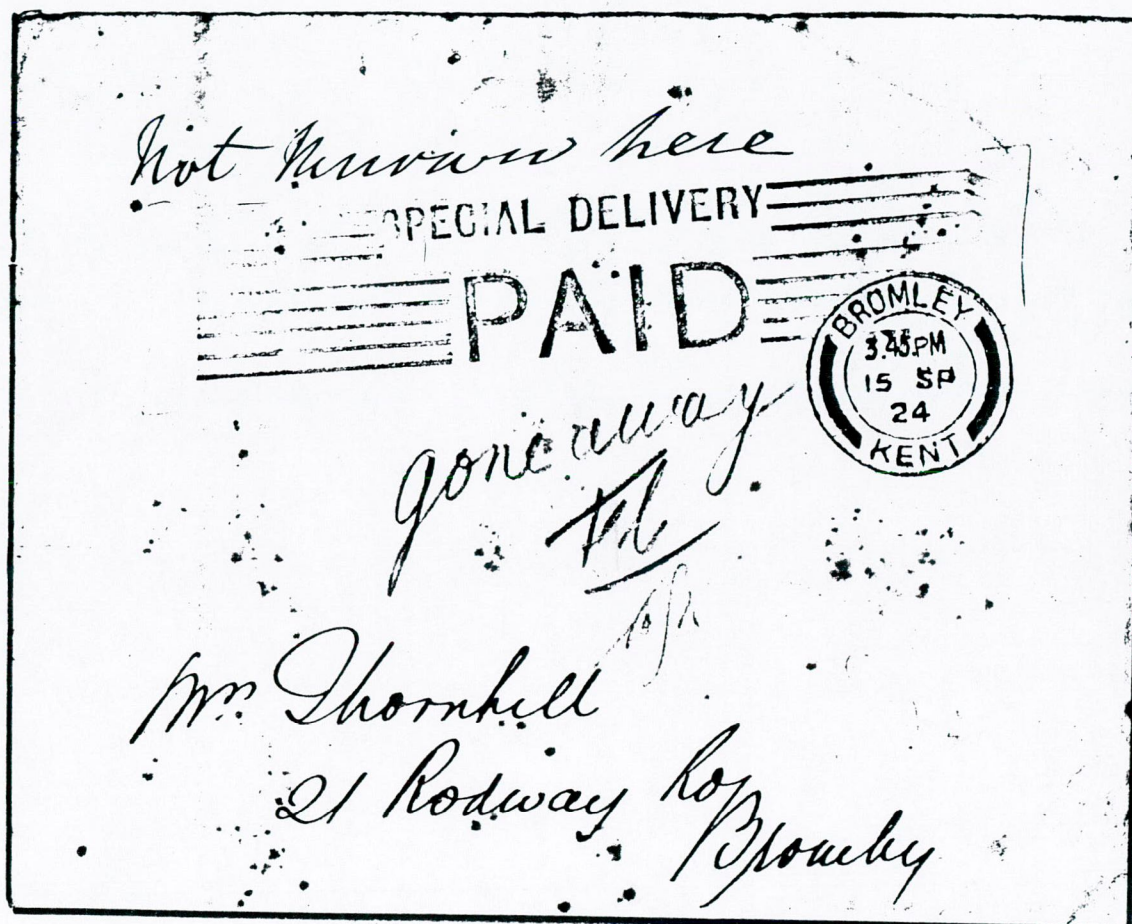 Not Known here
SPECIAL DELIVERY
PAID
BROMLEY
3.45PM
15 SP
24
KENT
gone away
Mrs Thornhill
21 Rodway
Bromley